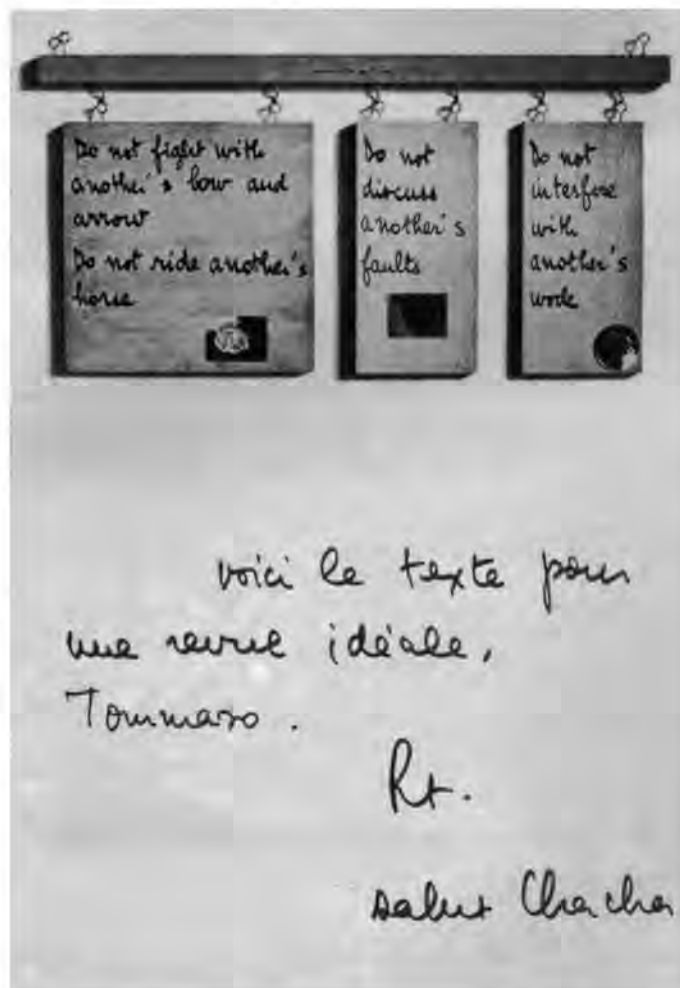 Do not fight with
another's bow and
arrow
Do not ride another's
horse
Do not
discuss
another's
faults
Do not
interfere
with
another's
work
voici le texte pour
une revue idéale,
Tommaso.
Rt.
salut Chacha